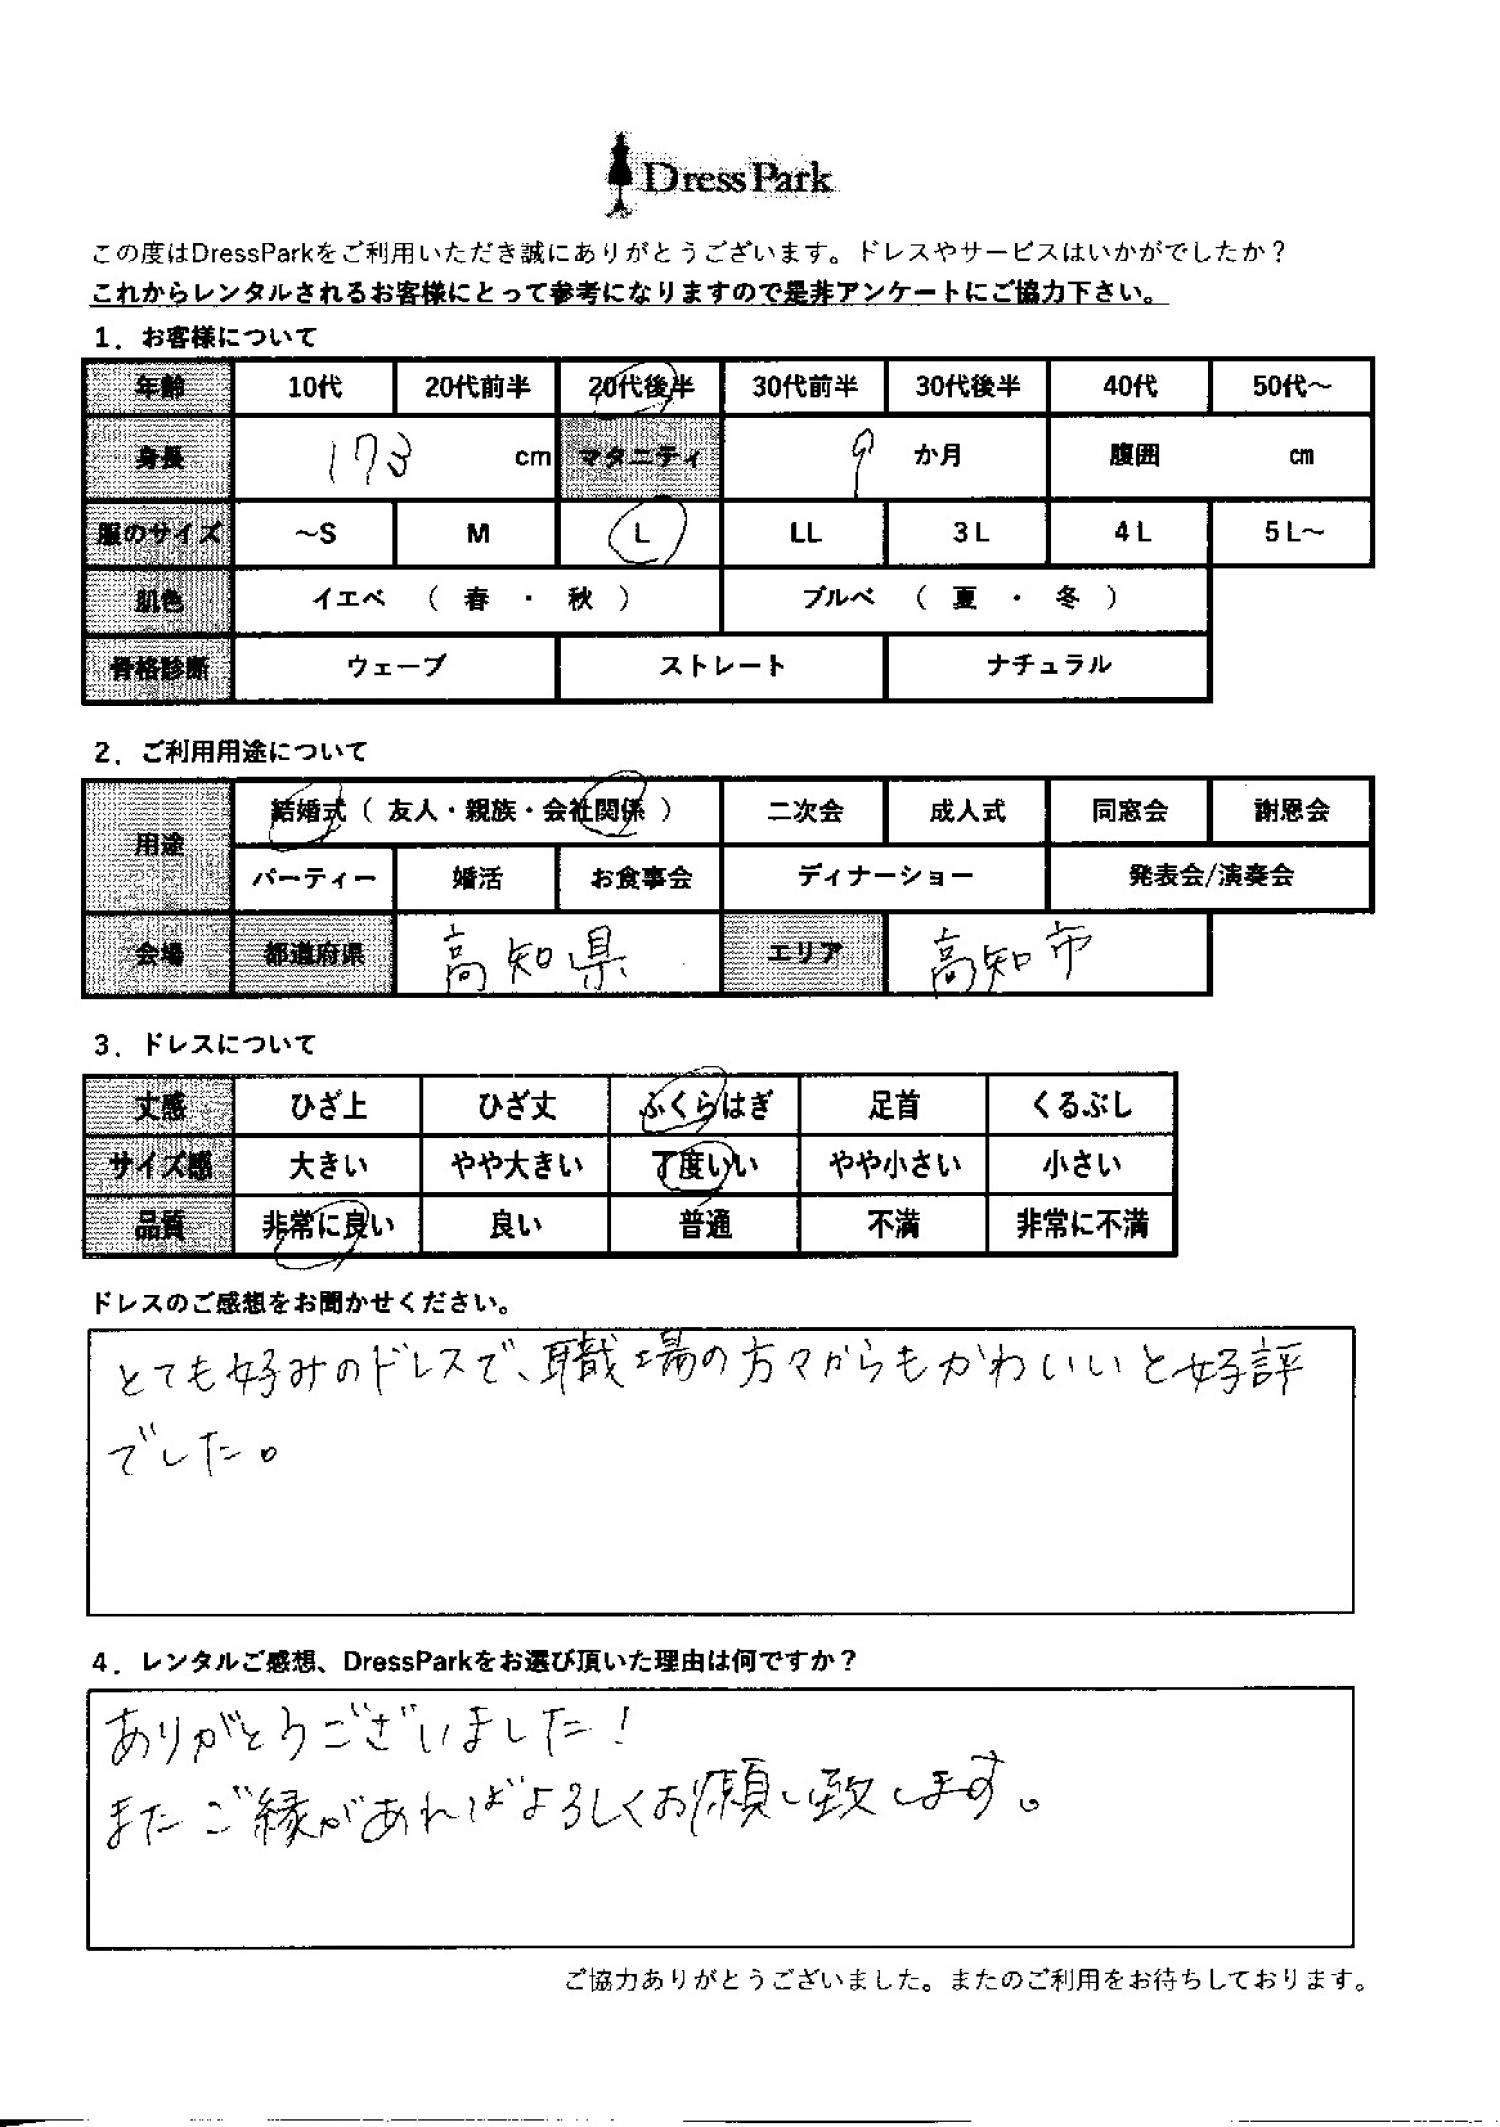 DressPark
この度はDressParkをご利用いただき誠にありがとうございます。ドレスやサービスはいかがでしたか？
これからレンタルされるお客様にとって参考になりますので是非アンケートにご協力下さい。
1．お客様について
年齢 10代 20代前半 20代後半 30代前半 30代後半 40代 50代～
身長 173 cm マタニティ 9 か月 腹囲 cm
服のサイズ ～S M L LL 3L 4L 5L～
肌色 イエベ （ 春 ・ 秋 ） ブルべ （ 夏 ・ 冬 ）
骨格診断 ウェーブ ストレート ナチュラル
2．ご利用用途について
用途 結婚式（ 友人・親族・会社関係 ） 二次会 成人式 同窓会 謝恩会
パーティー 婚活 お食事会 ディナーショー 発表会/演奏会
会場 都道府県 高知県 エリア 高知市
3．ドレスについて
丈感 ひざ上 ひざ丈 ふくらはぎ 足首 くるぶし
サイズ感 大きい やや大きい 丁度いい やや小さい 小さい
品質 非常に良い 良い 普通 不満 非常に不満
ドレスのご感想をお聞かせください。
とても好みのドレスで、職場の方々からもかわいいと好評
でした。
4．レンタルご感想、DressParkをお選び頂いた理由は何ですか？
ありがとうございました！
またご縁があればよろしくお願い致します。
ご協力ありがとうございました。またのご利用をお待ちしております。